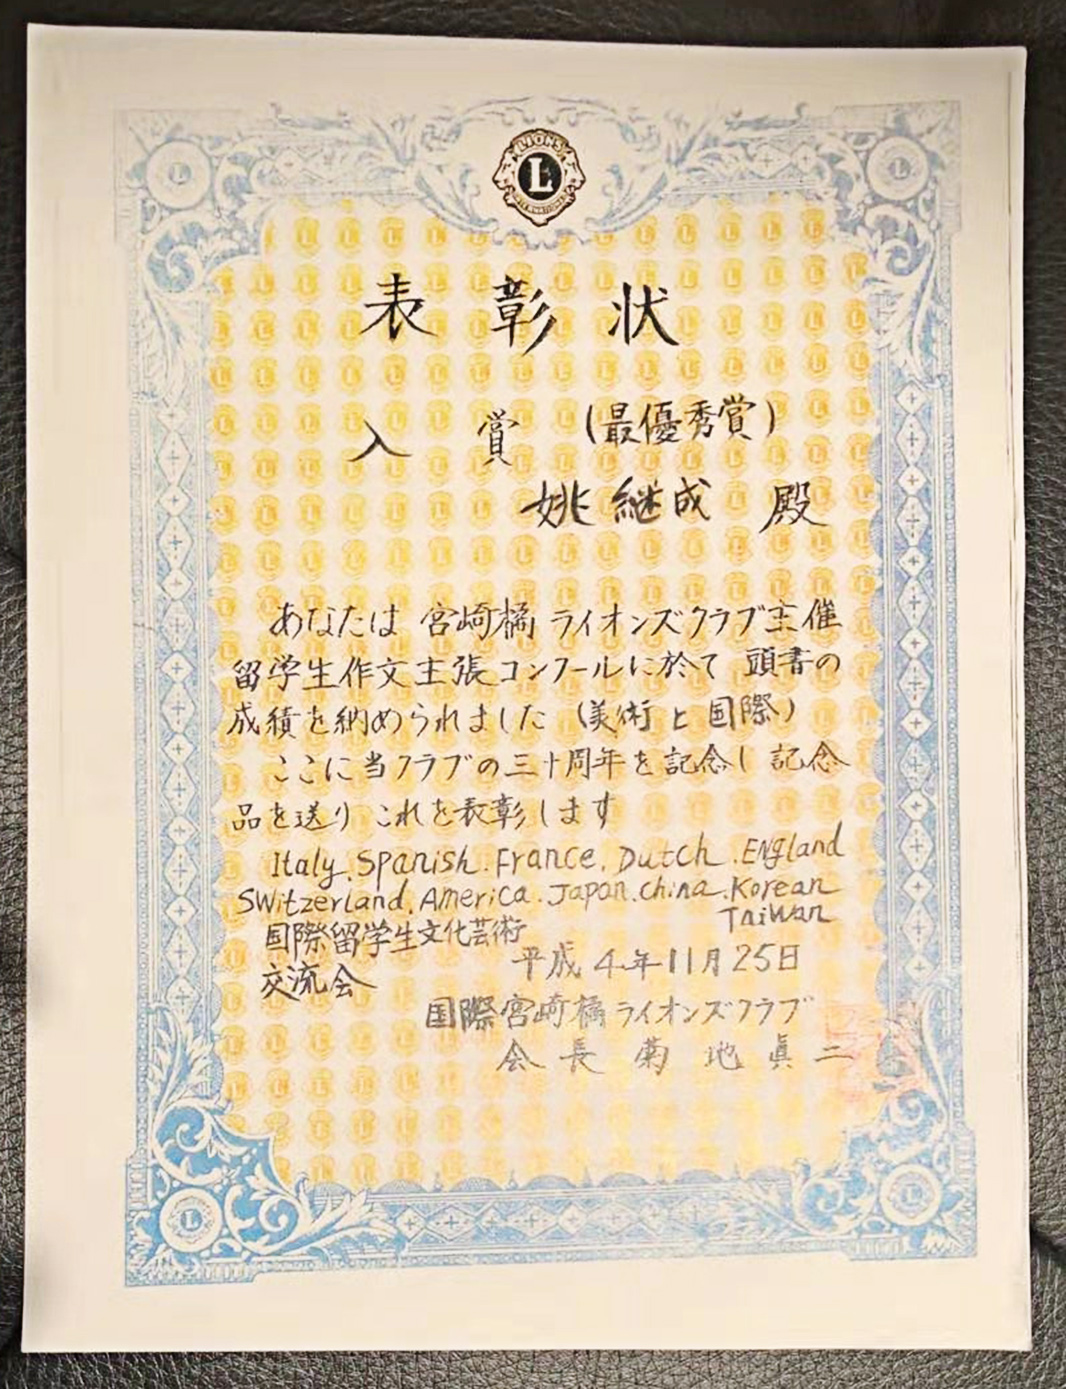 LIONS
L
INTERNATIONAL
表彰状
入賞 (最優秀賞)
姚継成 殿
あなたは宮崎橘ライオンズクラブ主催
留学生作文主張コンクールに於て頭書の
成績を納められました (美術と国際)
ここに当クラブの三十周年を記念し記念
品を送りこれを表彰します
Italy.Spanish.France.Dutch.England
SWitzerland.America.Japan.china.Korean
Taiwan
国際留学生文化芸術
交流会
平成4年11月25日
国際宮崎橘ライオンズクラブ
会長 菊地眞二